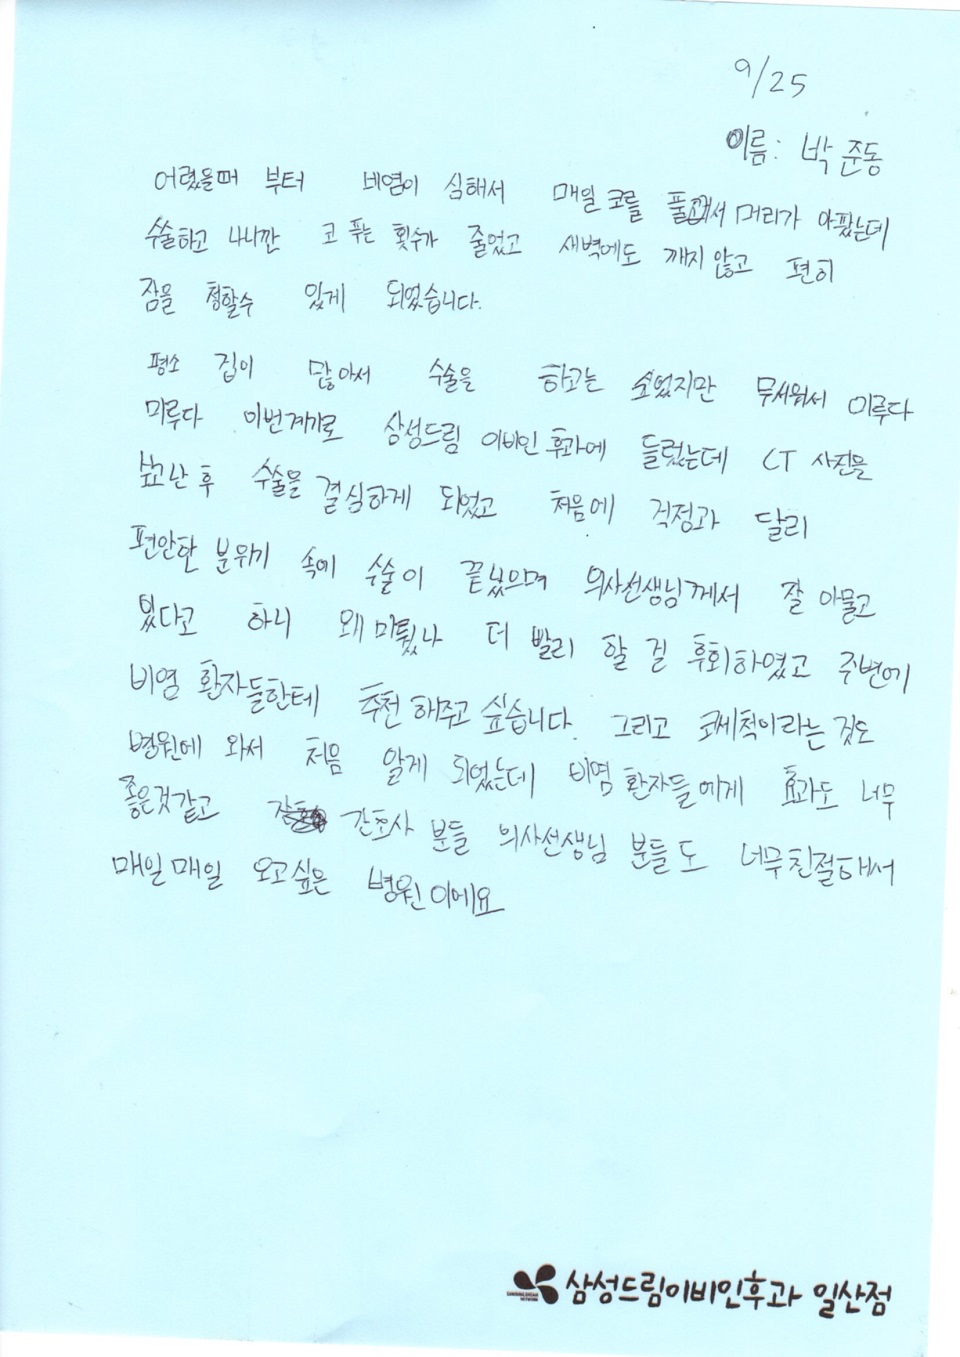 9/25
이름: 박준동
어렸을때 부터 비염이 심해서 매일 코를 풀어서 머리가 아팠는데
수술하고 나니깐 코 푸는 횟수가 줄었고 새벽에도 깨지 않고 편히
잠을 청할수 있게 되었습니다.
평소 겁이 많아서 수술을 하고는 싶었지만 무서워서 미루다
미루다 이번계기로 삼성드림 이비인후과에 들렸는데 CT 사진을
보고난 후 수술을 결심하게 되었고 처음에 걱정과 달리
편안한 분위기 속에 수술이 끝났으며 의사선생님께서 잘 아물고
있다고 하니 왜 미뤘나 더 빨리 할 걸 후회하였고 주변에
비염 환자들한테 추천해주고 싶습니다. 그리고 코세척이라는 것도
병원에 와서 처음 알게 되었는데 비염 환자들에게 효과도 너무
좋은것같고 간호사 분들 의사선생님 분들도 너무친절해서
매일매일 오고싶은 병원이에요
삼성드림이비인후과 일산점